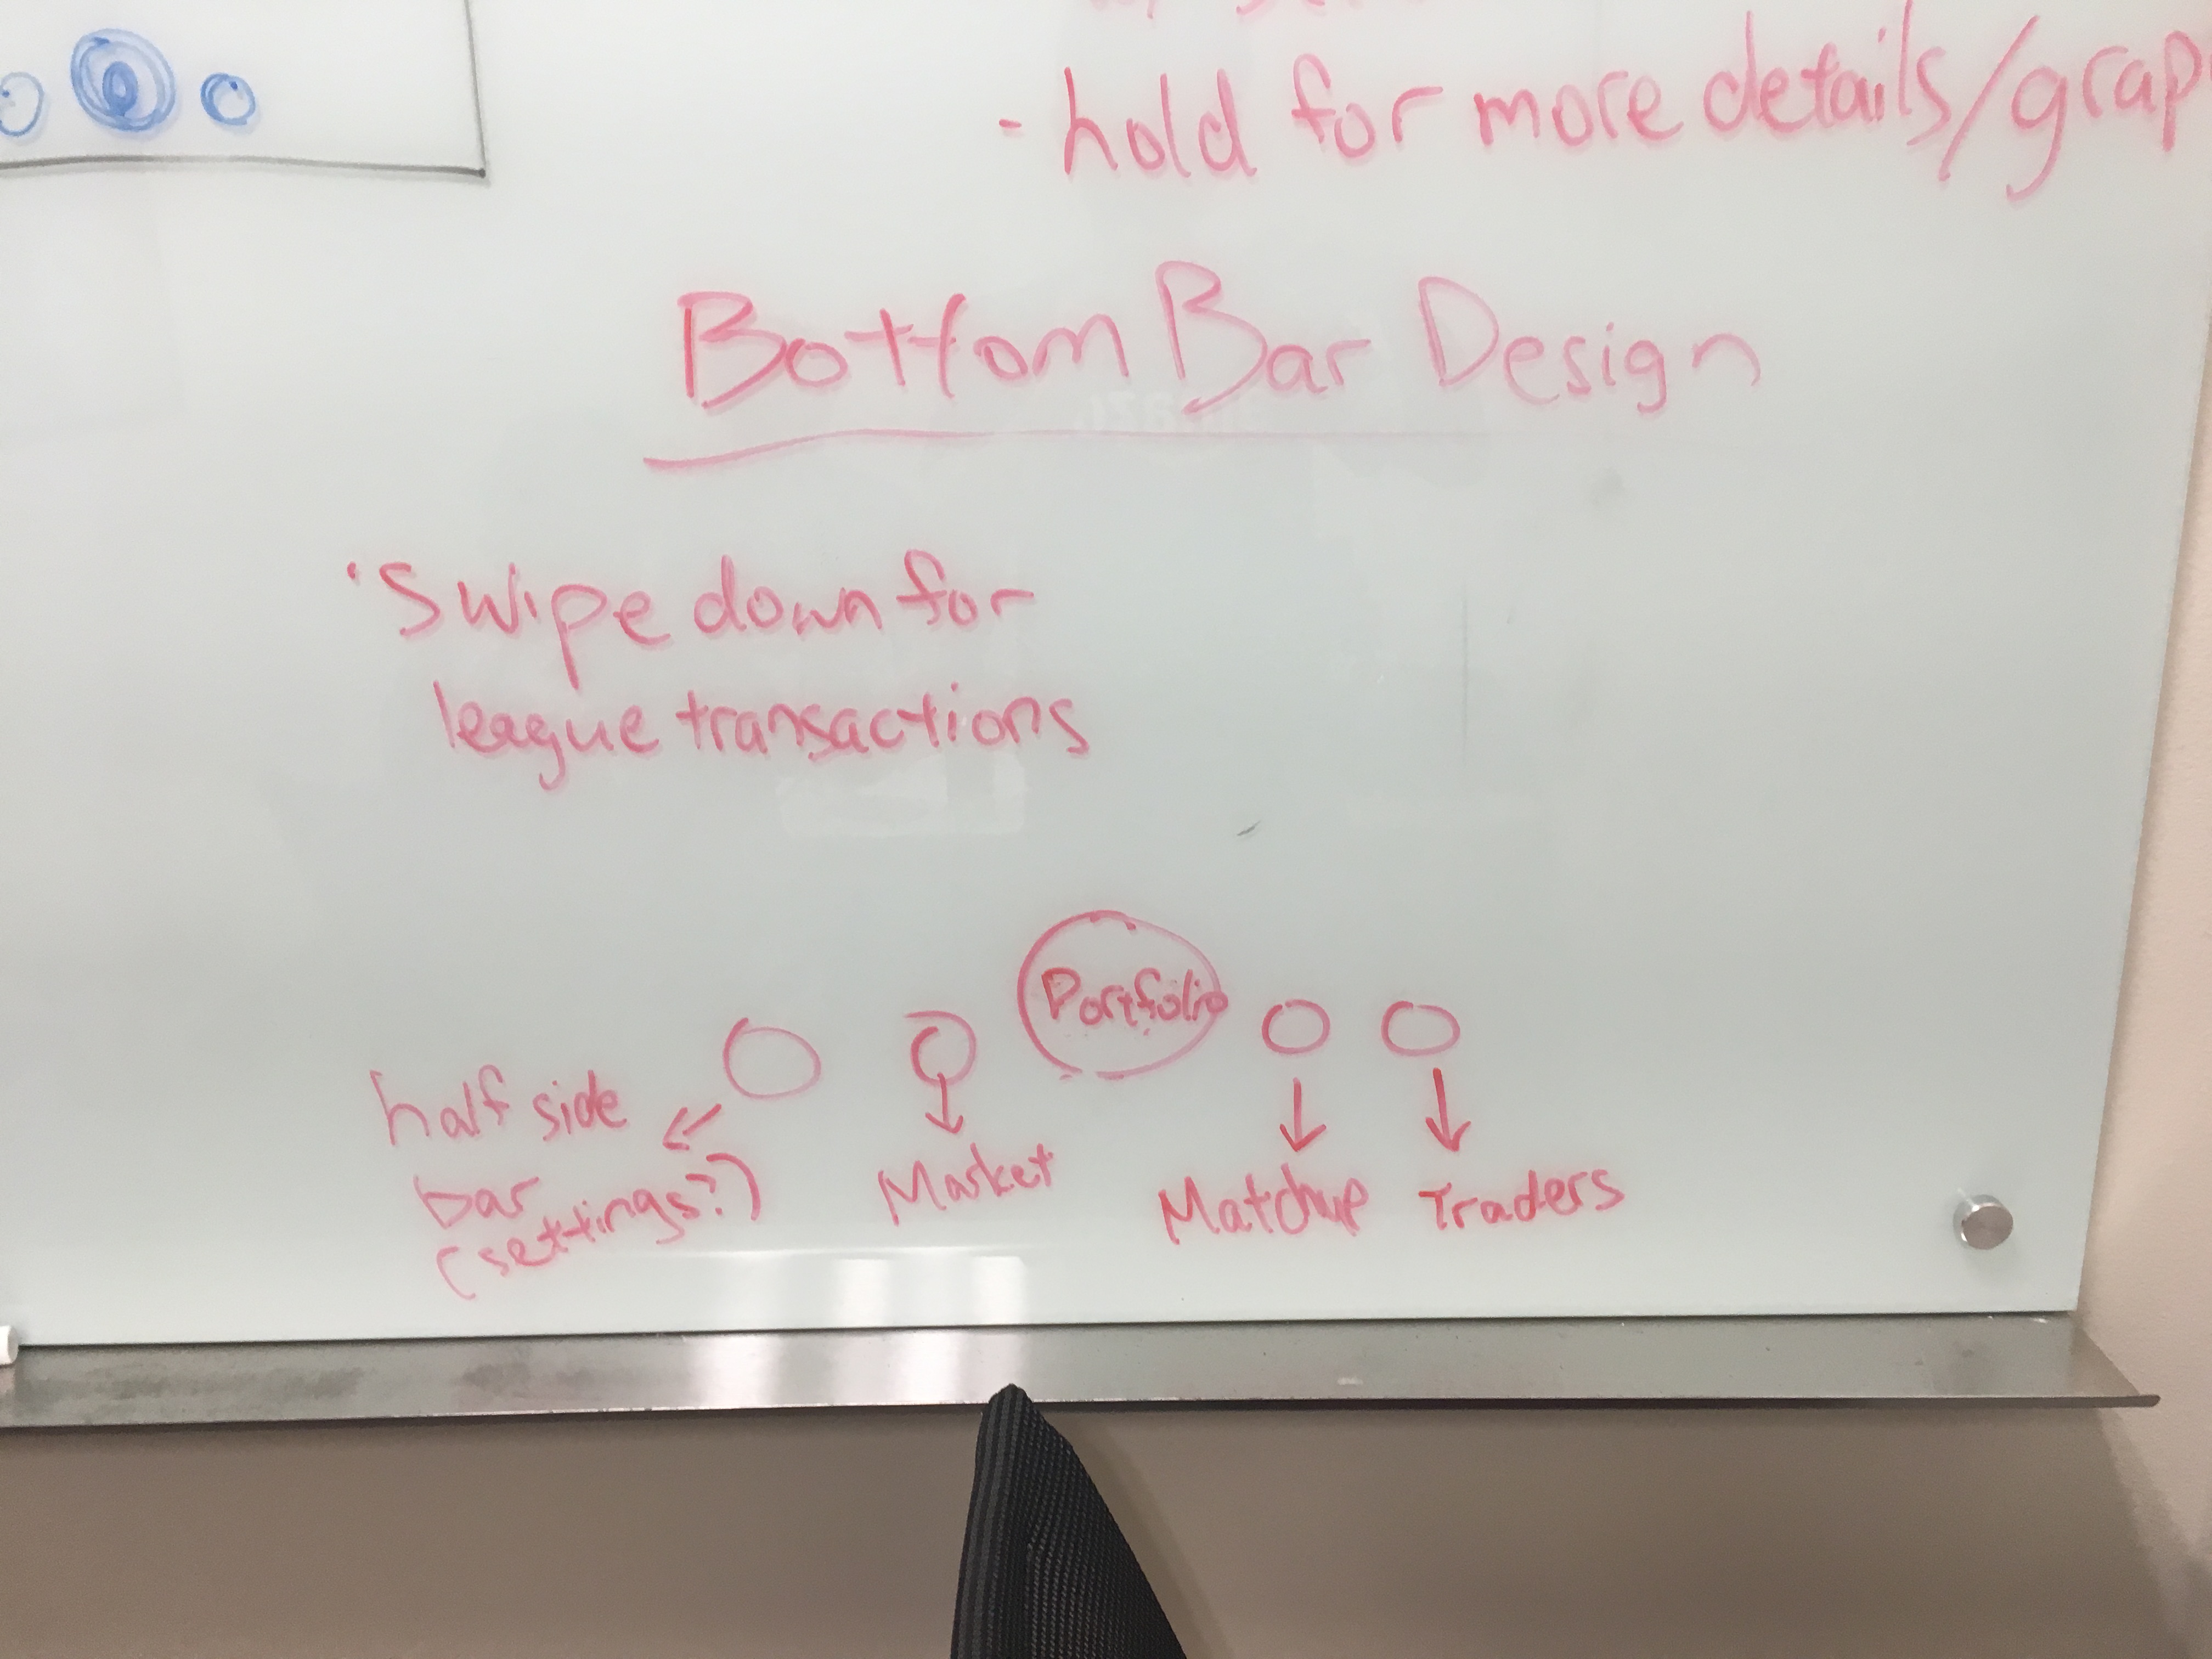 - hold for more details/grap
Bottom Bar Design
• Swipe down for
league transactions
Portfolio
half side
bar
(settings?)
Market
Matchup
Traders